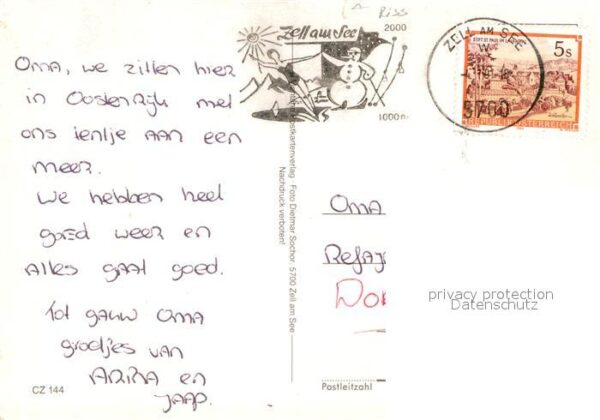 Riss
Zell am See
2000
1000 m
ZELL AM SEE
5700
STIFT ST. PAUL IM LAVANTTAL
5s
REPUBLIK ÖSTERREICH
Oma, we zitten hier
in Oostenrijk met
ons tentje aan een
meer.
We hebben heel
goed weer en
alles gaat goed.
Tot gauw Oma
groetjes van
en
Jaap.
CZ 144
Postkartenverlag Foto Dietmar Sochor 5700 Zell am See
Nachdruck verboten!
Oma
Postleitzahl
privacy protection
Datenschutz